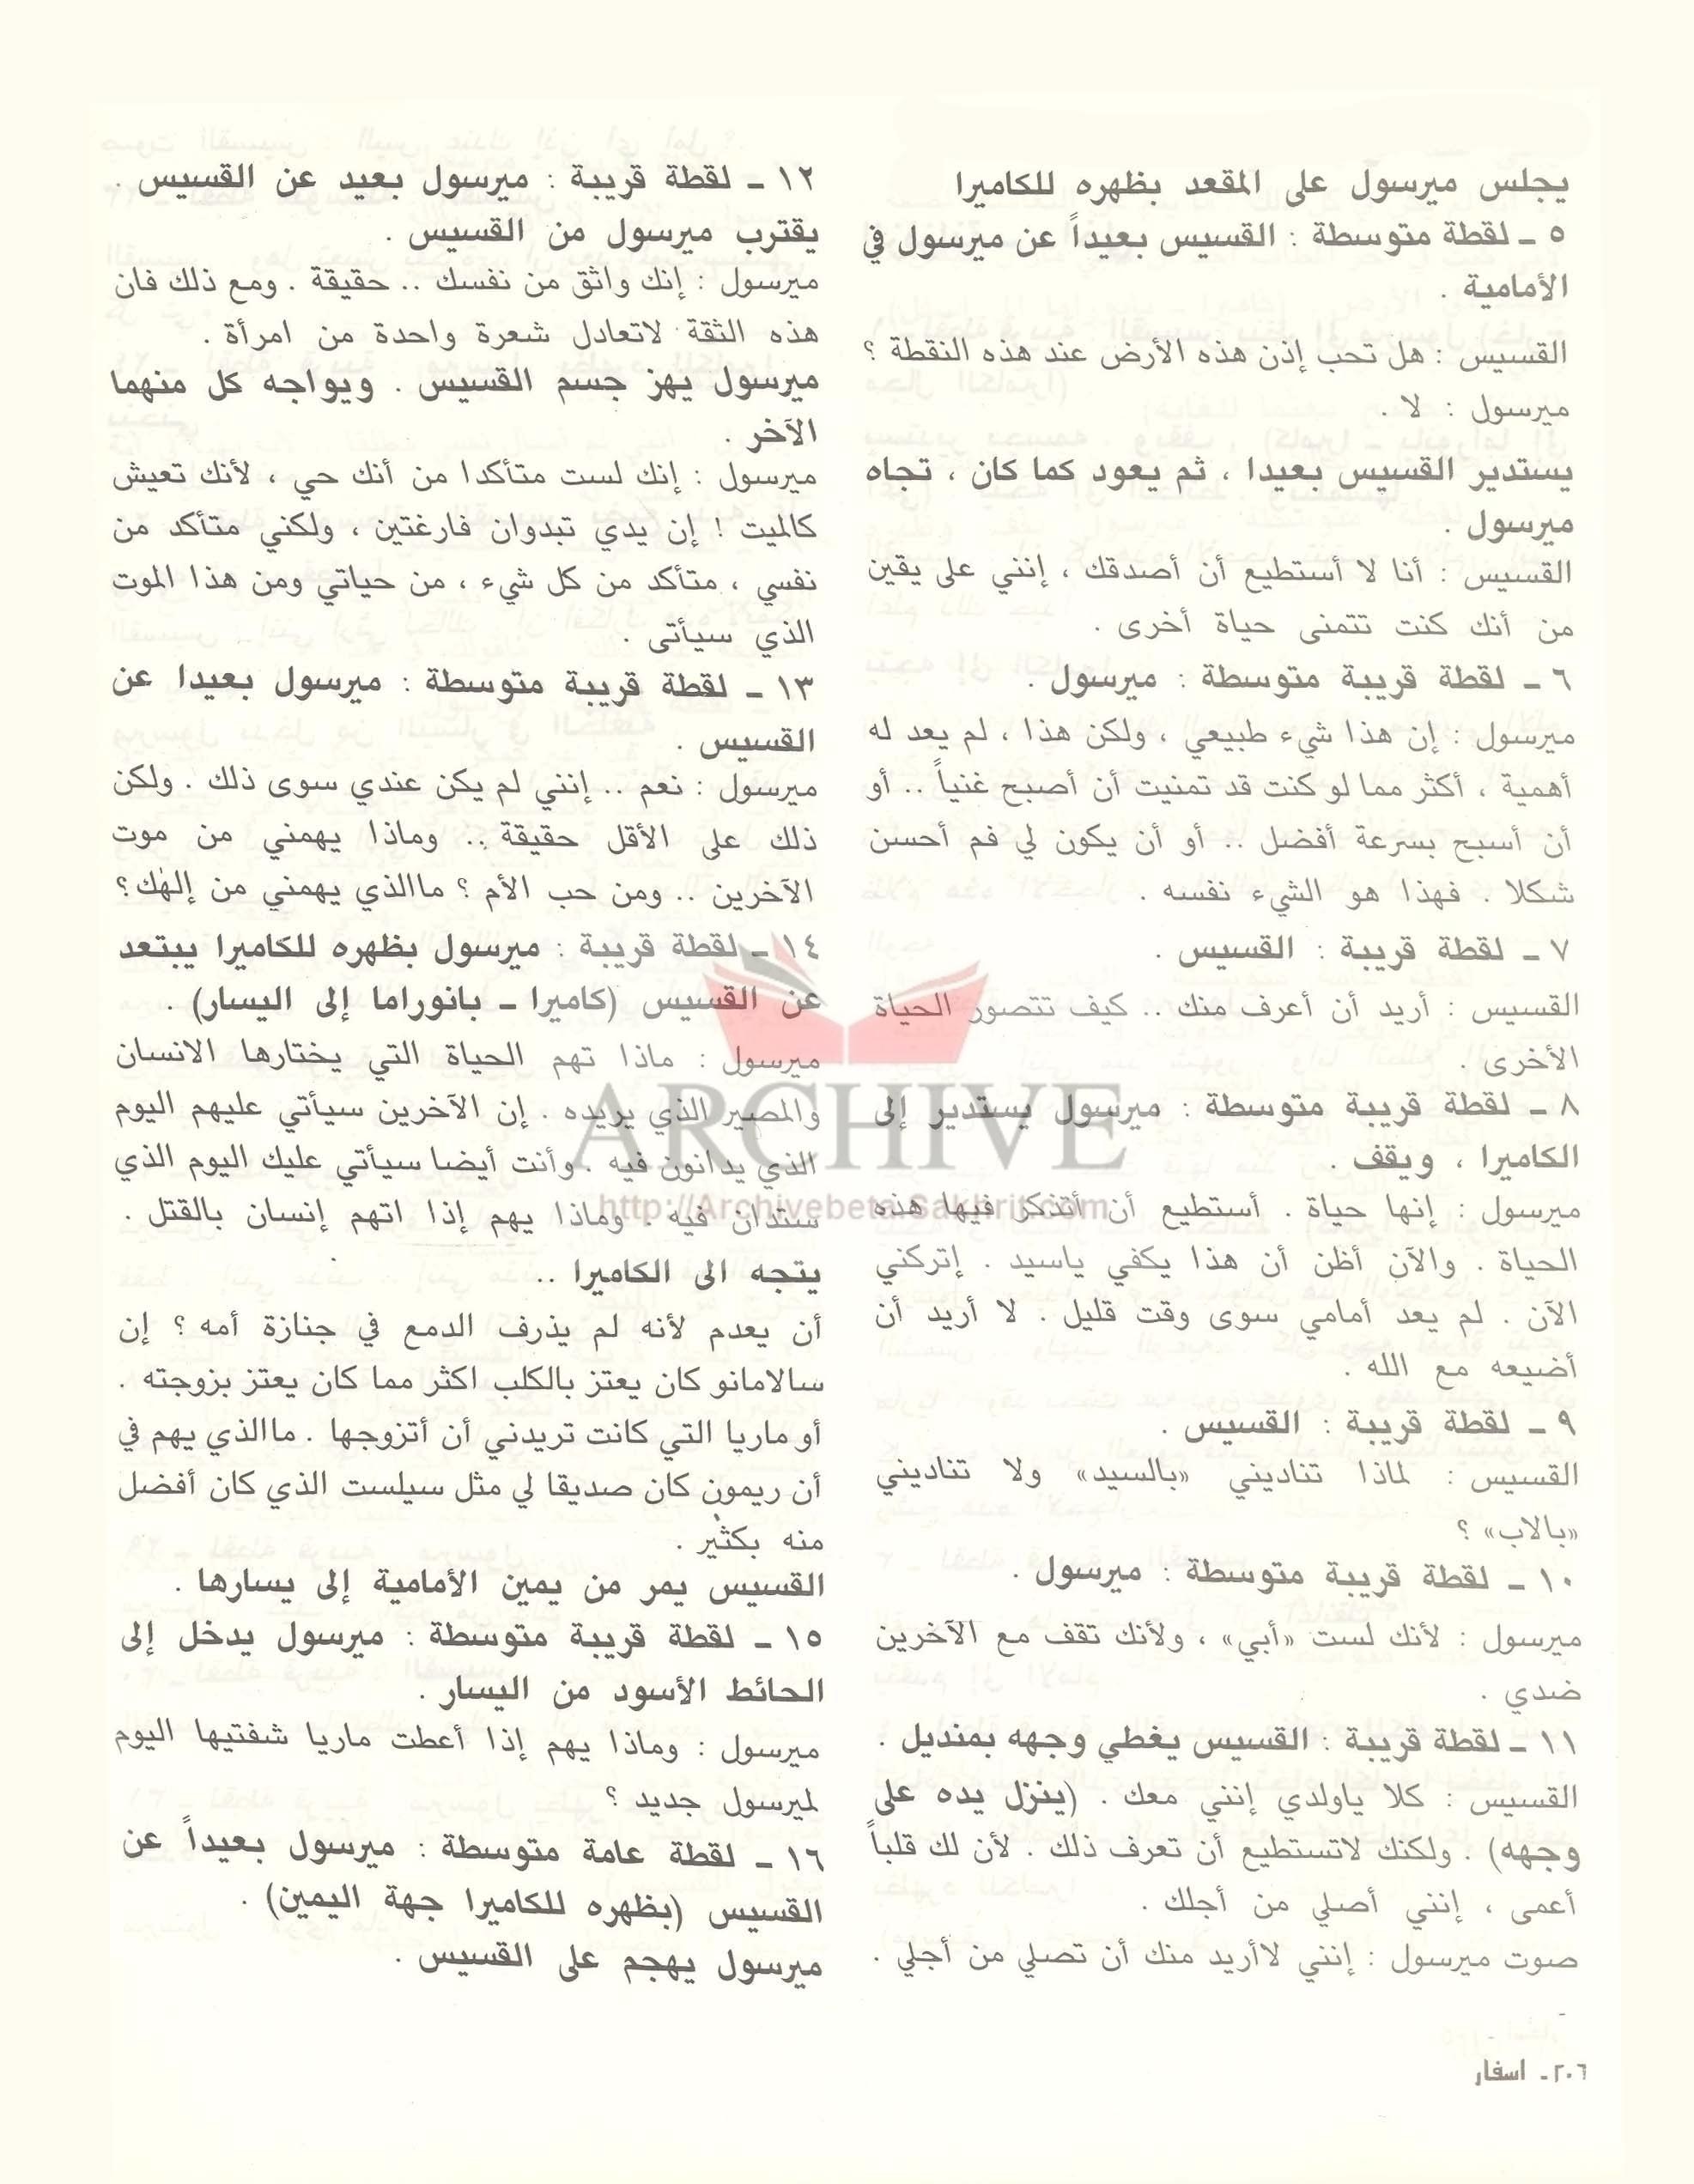 يجلس ميرسول على المقعد بظهره للكاميرا
٥ - لقطة متوسطة : القسيس بعيداً عن ميرسول في
الأمامية .
القسيس : هل تحب إذن هذه الأرض عند هذه النقطة ؟
ميرسول : لا .
يستدير القسيس بعيدا ، ثم يعود كما كان ، تجاه
ميرسول .
القسيس : أنا لا أستطيع أن أصدقك ، إنني على يقين
من أنك كنت تتمنى حياة أخرى .
٦ - لقطة قريبة متوسطة : ميرسول .
ميرسول : إن هذا شيء طبيعي ، ولكن هذا ، لم يعد له
أهمية ، أكثر مما لو كنت قد تمنيت أن أصبح غنياً .. أو
أن أسبح بسرعة أفضل .. أو أن يكون لي فم أحسن
شكلا . فهذا هو الشيء نفسه .
٧ - لقطة قريبة : القسيس .
القسيس : أريد أن أعرف منك .. كيف تتصور الحياة
الأخرى .
٨ - لقطة قريبة متوسطة : ميرسول يستدير إلى
الكاميرا ، ويقف .
ميرسول : إنها حياة . أستطيع أن أتذكر فيها هذه
الحياة . والآن أظن أن هذا يكفي ياسيد . إتركني
الآن . لم يعد أمامي سوى وقت قليل . لا أريد أن
أضيعه مع الله .
٩ - لقطة قريبة : القسيس .
القسيس : لماذا تناديني «بالسيد» ولا تناديني
«بالاب» ؟
١٠ - لقطة قريبة متوسطة : ميرسول .
ميرسول : لأنك لست «أبي» ، ولأنك تقف مع الآخرين
ضدي .
١١ - لقطة قريبة : القسيس يغطي وجهه بمنديل .
القسيس : كلا ياولدي إنني معك . (ينزل يده على
وجهه) . ولكنك لاتستطيع أن تعرف ذلك . لأن لك قلباً
أعمى ، إنني أصلي من أجلك .
صوت ميرسول : إنني لاأريد منك أن تصلي من أجلي .
١٢ - لقطة قريبة : ميرسول بعيد عن القسيس .
يقترب ميرسول من القسيس .
ميرسول : إنك واثق من نفسك .. حقيقة . ومع ذلك فان
هذه الثقة لاتعادل شعرة واحدة من امرأة .
ميرسول يهز جسم القسيس . ويواجه كل منهما
الآخر .
ميرسول : إنك لست متأكدا من أنك حي ، لأنك تعيش
كالميت ! إن يدي تبدوان فارغتين ، ولكني متأكد من
نفسي ، متأكد من كل شيء ، من حياتي ومن هذا الموت
الذي سيأتى .
١٣ - لقطة قريبة متوسطة : ميرسول بعيدا عن
القسيس .
ميرسول : نعم .. إنني لم يكن عندي سوى ذلك . ولكن
ذلك على الأقل حقيقة .. وماذا يهمني من موت
الآخرين .. ومن حب الأم ؟ ماالذي يهمني من إلهك؟
١٤ - لقطة قريبة : ميرسول بظهره للكاميرا يبتعد
عن القسيس (كاميرا - بانوراما إلى اليسار) .
ميرسول : ماذا تهم الحياة التي يختارها الانسان
والمصير الذي يريده . إن الآخرين سيأتي عليهم اليوم
الذي يدانون فيه . وأنت أيضا سيأتي عليك اليوم الذي
ستدان فيه . وماذا يهم إذا اتهم إنسان بالقتل .
يتجه الى الكاميرا ..
أن يعدم لأنه لم يذرف الدمع في جنازة أمه ؟ إن
سالامانو كان يعتز بالكلب اكثر مما كان يعتز بزوجته .
أو ماريا التي كانت تريدني أن أتزوجها . ماالذي يهم في
أن ريمون كان صديقا لي مثل سيلست الذي كان أفضل
منه بكثير .
القسيس يمر من يمين الأمامية إلى يسارها .
١٥ - لقطة قريبة متوسطة : ميرسول يدخل إلى
الحائط الأسود من اليسار .
ميرسول : وماذا يهم إذا أعطت ماريا شفتيها اليوم
لميرسول جديد ؟
١٦ - لقطة عامة متوسطة : ميرسول بعيداً عن
القسيس (بظهره للكاميرا جهة اليمين) .
ميرسول يهجم على القسيس .
ARCHIVE
http://Archivebeta.Sakhrit.com
٢٠٦ - اسفار